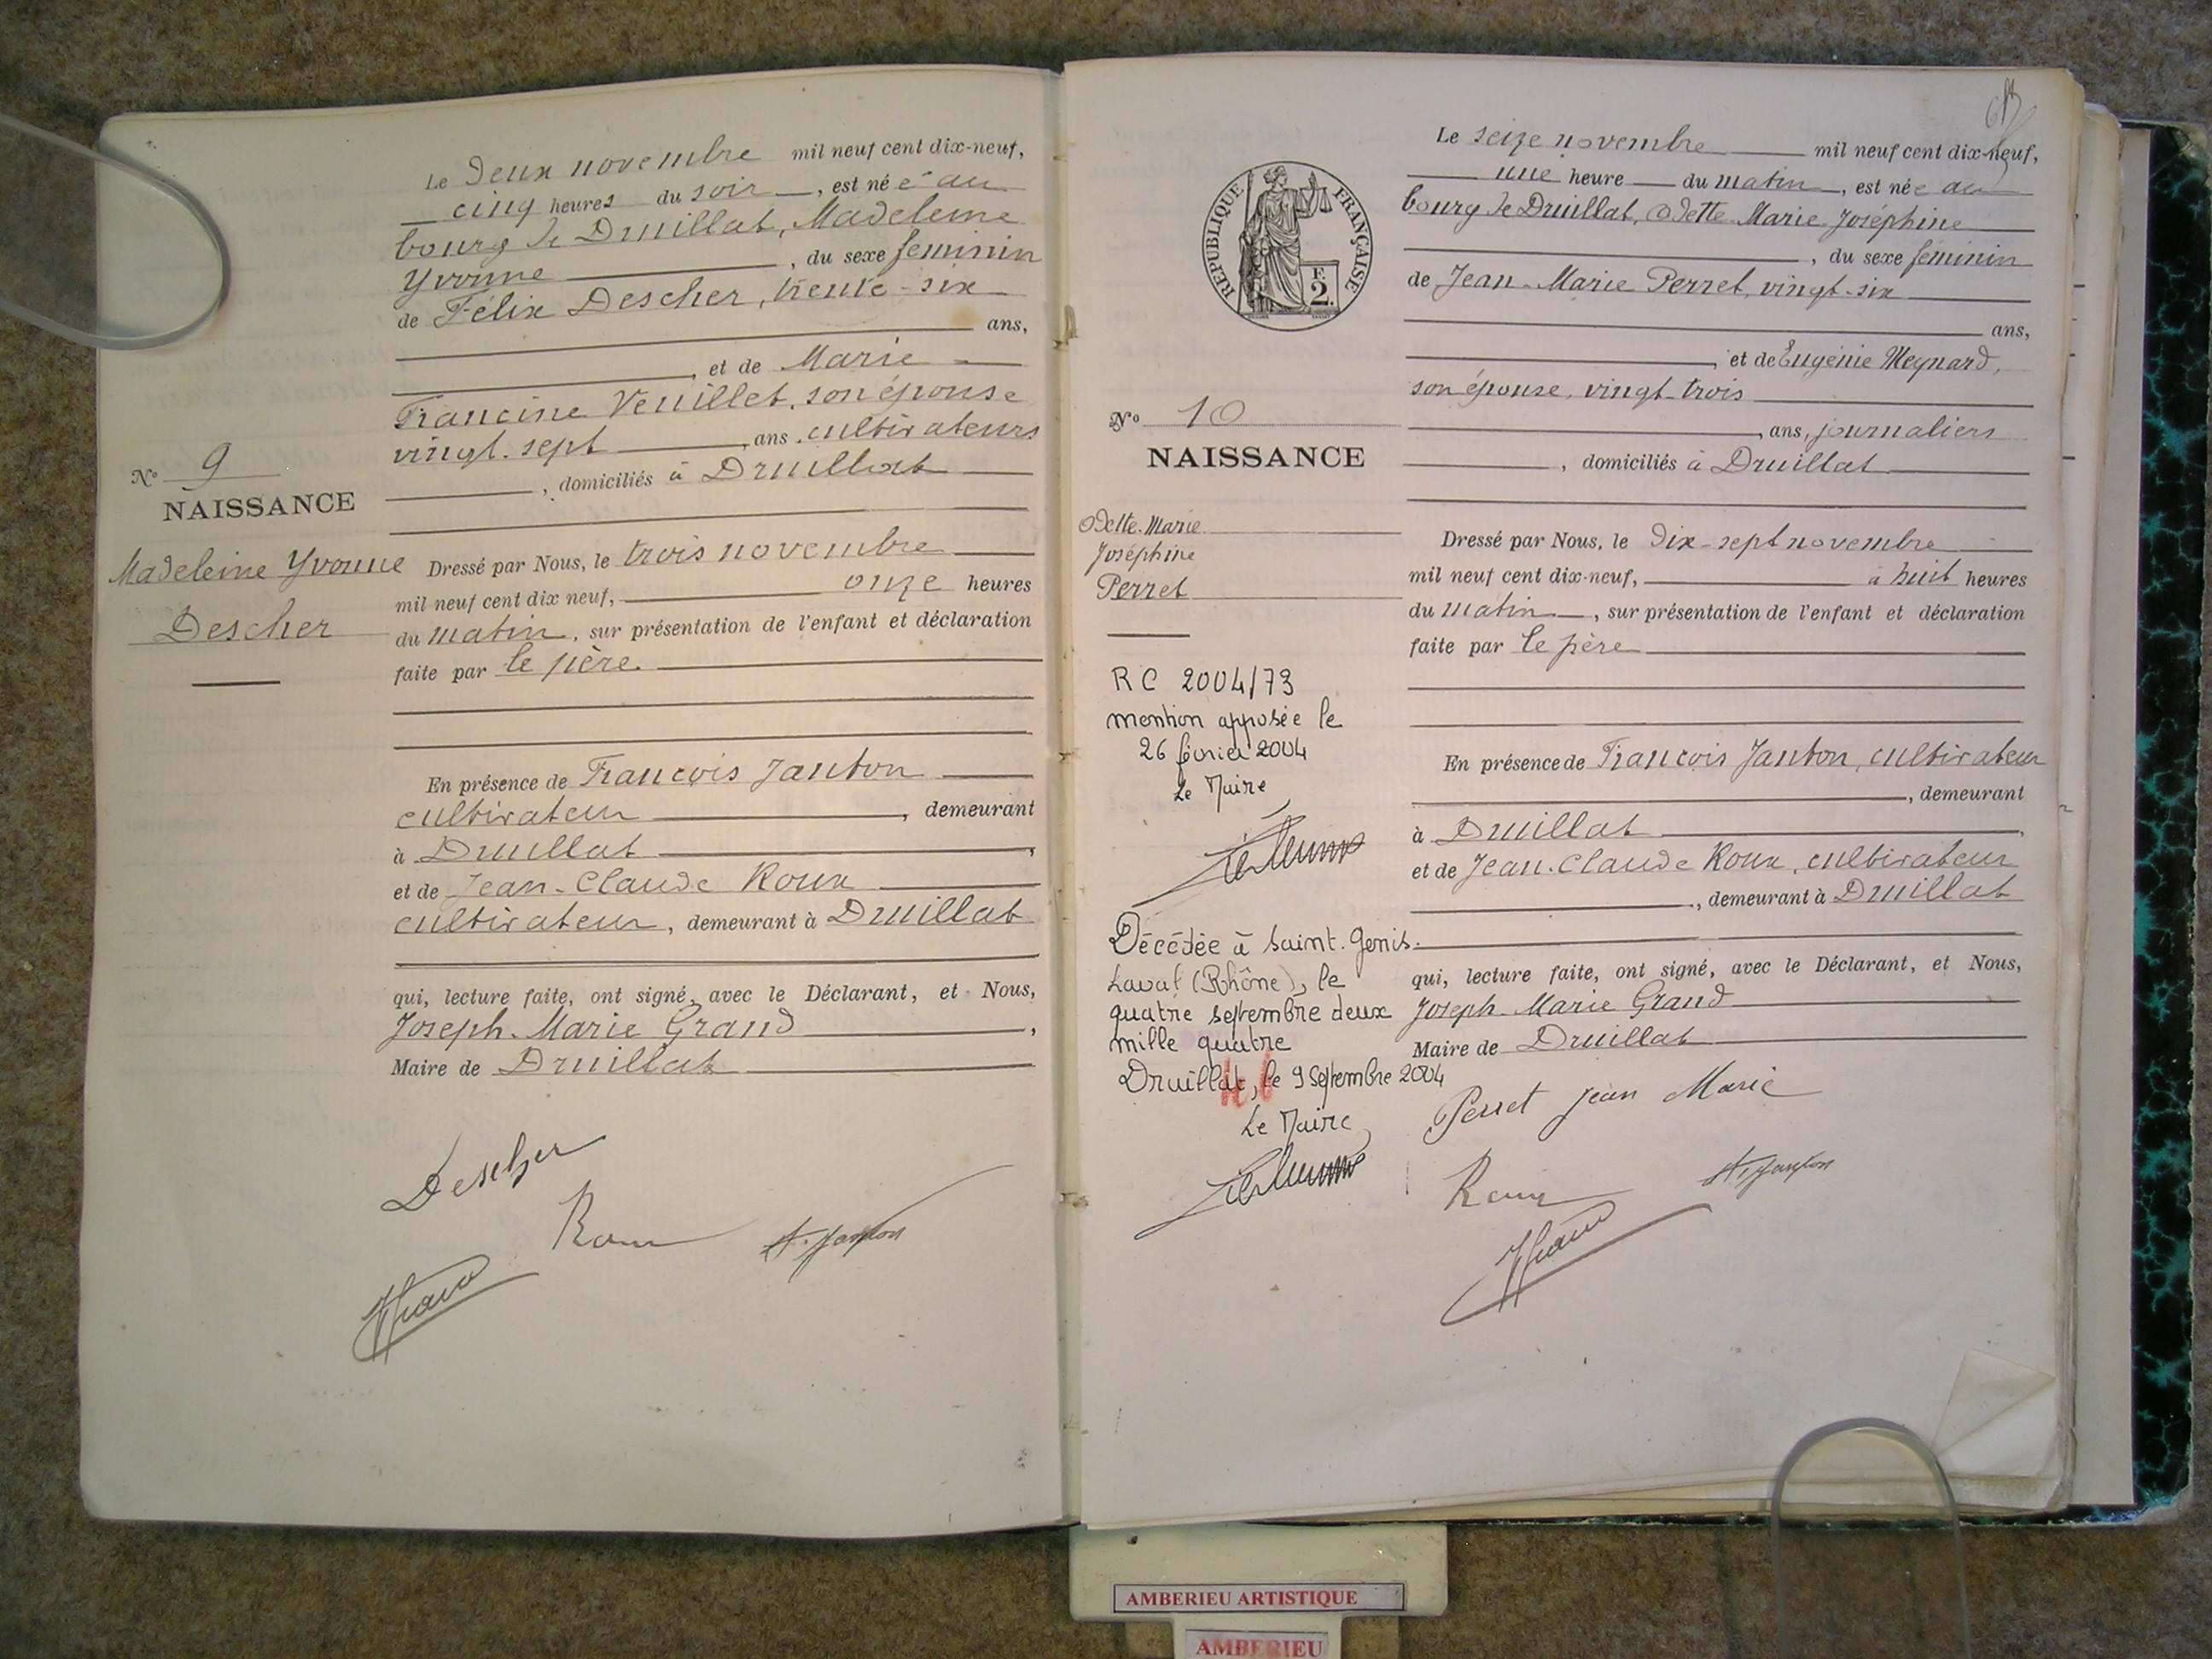 Le Deux novembre mil neuf cent dix-neuf,
cinq heures du soir, est née au
bourg de Druillat, Madeleine
Yvonne, du sexe féminin
de Félix Descher, trente-six
ans,
, et de Marie
Francine Veuillet, son épouse
vingt-sept ans, cultivateurs
, domiciliés à Druillat
N° 9
NAISSANCE
Madeleine Yvonne
Descher
Dressé par Nous, le trois novembre
mil neuf cent dix neuf, onze heures
du matin, sur présentation de l'enfant et déclaration
faite par le père.
En présence de François Janton
cultivateur, demeurant
à Druillat,
et de Jean-Claude Roux
cultivateur, demeurant à Druillat
qui, lecture faite, ont signé, avec le Déclarant, et Nous,
Joseph-Marie Grand,
Maire de Druillat
Descher
Roux
Janton
JGrand
Le seize novembre mil neuf cent dix-neuf,
une heure du matin, est née au
bourg de Druillat, Odette Marie Joséphine
, du sexe féminin
de Jean-Marie Perret, vingt-six
ans,
, et de Eugénie Meynard,
son épouse, vingt-trois
, ans, journaliers
, domiciliés à Druillat
RÉPUBLIQUE FRANÇAISE
F.
2.
N° 10
NAISSANCE
Odette-Marie
Joséphine
Perret
Dressé par Nous, le dix-sept novembre
mil neuf cent dix-neuf, à huit heures
du matin, sur présentation de l'enfant et déclaration
faite par le père
RC 2004/73
mention apposée le
26 février 2004
Le Maire
En présence de François Janton, cultivateur
, demeurant
à Druillat,
et de Jean-Claude Roux, cultivateur
, demeurant à Druillat
qui, lecture faite, ont signé, avec le Déclarant, et Nous,
Joseph-Marie Grand
Maire de Druillat
Décédée à Saint-Genis-
Laval (Rhône), le
quatre septembre deux
mille quatre
Druillat, le 9 Septembre 2004
Le Maire
Perret Jean Marie
Roux
Janton
JGrand
AMBERIEU ARTISTIQUE
AMBERIEU